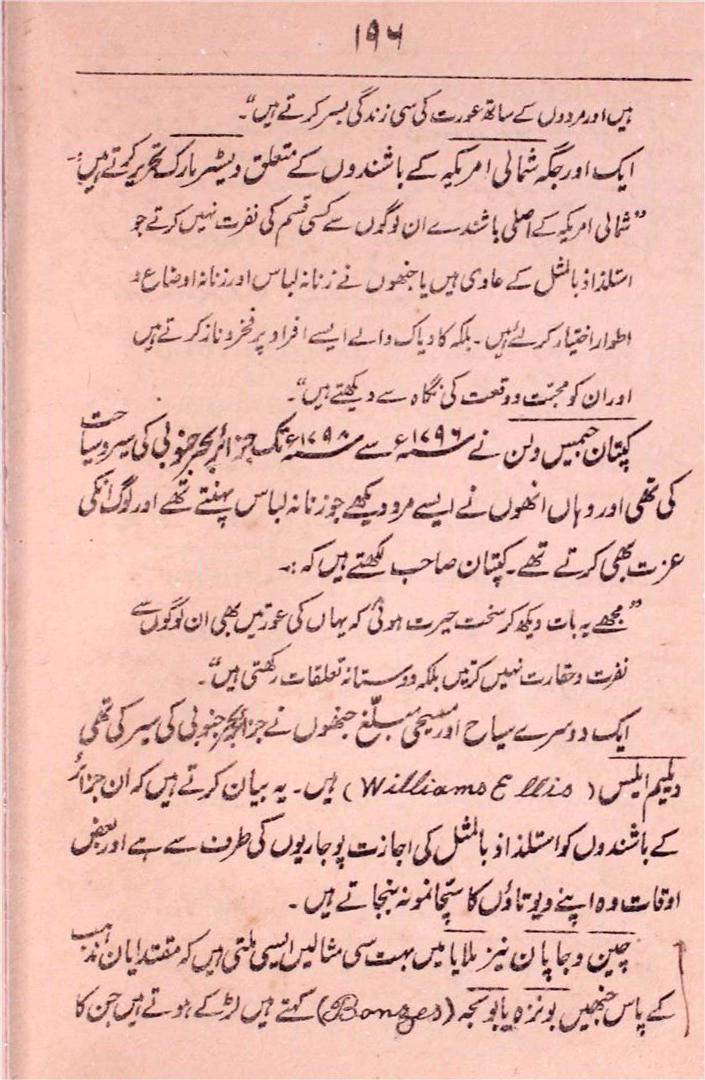 ۱۹۶
ہیں اور مردوں کے ساتھ عورت کی سی زندگی بسر کرتے ہیں"۔
ایک اور جگہ شمالی امریکہ کے باشندوں کے متعلق ویسٹر مارک تحریر کرتے ہیں:۔
"شمالی امریکہ کے اصلی باشندے ان لوگوں سے کسی قسم کی نفرت نہیں کرتے جو
استلذاذ بالمثل کے عادی ہیں یا جنھوں نے زنانہ لباس اور زنانہ اوضاع و
اطوار اختیار کر لئے ہیں۔ بلکہ کادیاک والے ایسے افراد پر فخر و ناز کرتے ہیں
اور ان کو محبّت و وقعت کی نگاہ سے دیکھتے ہیں"۔
کپتان جمیس ولسن نے ۱۷۹۶ء سے ۱۷۹۸ء تک جزائر بحر جنوبی کی سیر و سیاحت
کی تھی اور وہاں انھوں نے ایسے مرد دیکھے جو زنانہ لباس پہنتے تھے اور لوگ انکی
عزت بھی کرتے تھے۔ کپتان صاحب لکھتے ہیں کہ:۔
"مجھے یہ بات دیکھ کر سخت حیرت ہوئی کہ یہاں کی عورتیں بھی ان لوگوں سے
نفرت و حقارت نہیں کرتیں بلکہ دوستانہ تعلقات رکھتی ہیں"۔
ایک دوسرے سیاح اور مسیحی مبلّغ جنھوں نے جزائر بحر جنوبی کی سیر کی تھی
ولیم ایلس (Williams Ellis) ہیں۔ یہ بیان کرتے ہیں کہ ان جزائر
کے باشندوں کو استلذاذ بالمثل کی اجازت پوجاریوں کی طرف سے ہے اور بعض
اوقات وہ اپنے دیوتاؤں کا سچّا نمونہ بنجاتے ہیں۔
چین و جاپان نیز ملایا میں بہت سی مثالیں ایسی ملتی ہیں کہ مقتدایان مذہب
کے پاس جنھیں بونزہ یا بونجہ (Bonzes) کہتے ہیں لڑکے ہوتے ہیں جن کا